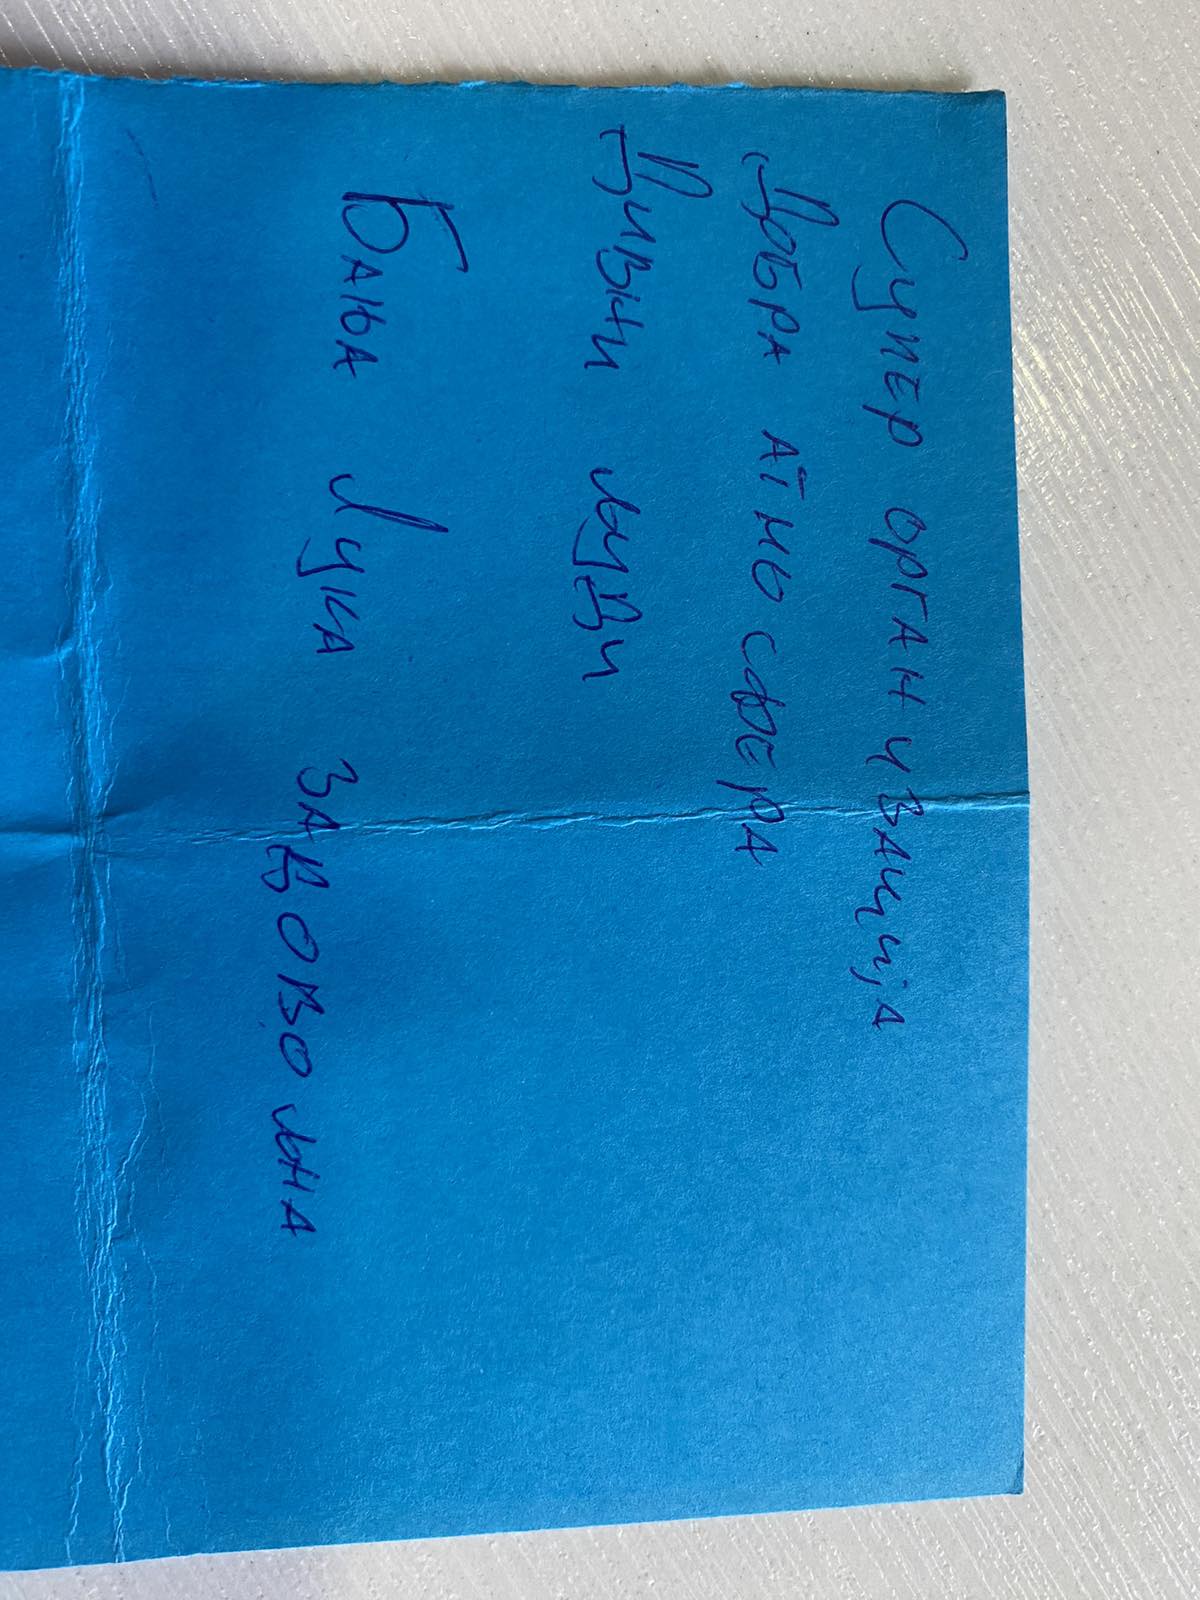 Супер организација
Добра атмосфера
Дивни људи
Бања Лука задовољна